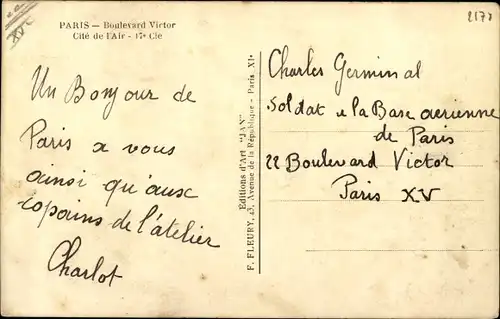 XVe
PARIS — Boulevard Victor
Cité de l'Air - 17e Cie
Un Bonjour de
Paris a vous
ainsi qu'aux
copains de l'atelier
Charlot
Editions d'Art "JAN"
F. FLEURY, 43, Avenue de la République - Paris XIe
2177
Charles Germinal
Soldat e la Base aerienne
de Paris
22 Boulevard Victor
Paris XV